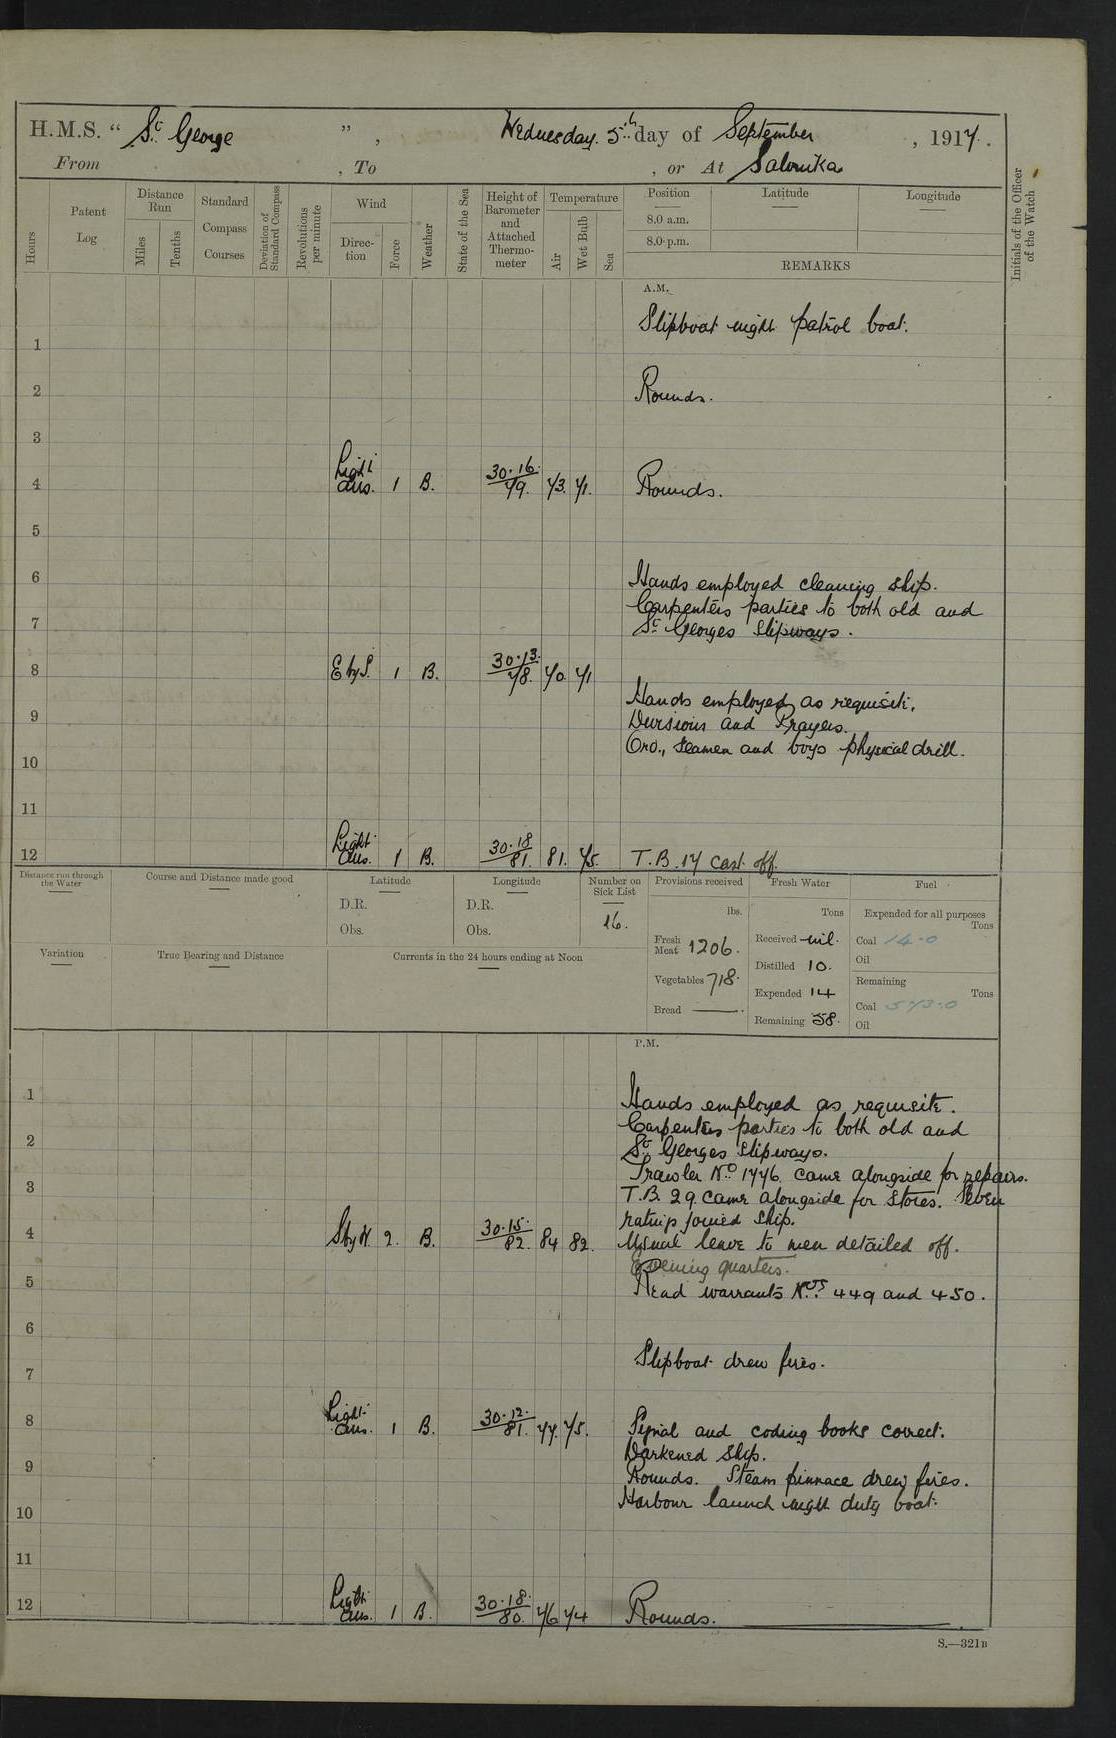 H.M.S. “ St. George ” , Wednesday. 5th day of September , 1917.
From , To , or At Salonika
Hours
Patent Log
Distance Run
Miles
Tenths
Standard Compass Courses
Deviation of Standard Compass
Revolutions per minute
Wind
Direction
Force
Weather
State of the Sea
Height of Barometer and Attached Thermometer
Temperature
Air
Wet Bulb
Sea
Position Latitude Longitude
8.0 a.m.
8.0 p.m.
REMARKS
Initials of the Officer of the Watch
A.M.
Slipboat night patrol boat.
1
2 Rounds.
3
4 Light airs. 1 B. 30.16. 79. 73. 71. Rounds.
5
6 Hands employed cleaning ship.
Carpenters parties to both old and
7 St. Georges Slipways.
8 E by S. 1 B. 30.13. 78. 70 71
Hands employed as requisite.
9 Divisions and Prayers.
Ord., Seamen and boys physical drill.
10
11
12 Light airs. 1 B. 30.18 81. 81. 75. T.B. 17 cast off
Distance run through the Water
Course and Distance made good
Latitude
D.R.
Obs.
Longitude
D.R.
Obs.
Number on Sick List
16.
Provisions received
lbs.
Fresh Meat 1206.
Vegetables 718.
Bread —
Fresh Water
Tons
Received nil.
Distilled 10.
Expended 14
Remaining 58.
Fuel
Expended for all purposes
Tons
Coal 14.0
Oil
Remaining
Tons
Coal 573.0
Oil
Variation
True Bearing and Distance
Currents in the 24 hours ending at Noon
P.M.
1 Hands employed as requisite.
Carpenters parties to both old and
2 St. Georges Slipways.
Trawler No. 1776. came alongside for repairs.
3 T.B. 29. came alongside for stores. Seven
ratings joined ship.
4 S by W. 2. B. 30.15. 82. 84 82. Usual leave to men detailed off.
Evening quarters.
5 Read warrants Nos. 449 and 450.
6
7 Slipboat drew fires.
8 Light airs. 1 B. 30.12. 81. 77. 75. Signal and coding books correct.
Darkened ship.
9 Rounds. Steam pinnace drew fires.
Harbour launch night duty boat.
10
11
12 Light airs. 1 B. 30.18. 80. 76 74 Rounds.
S.—321B